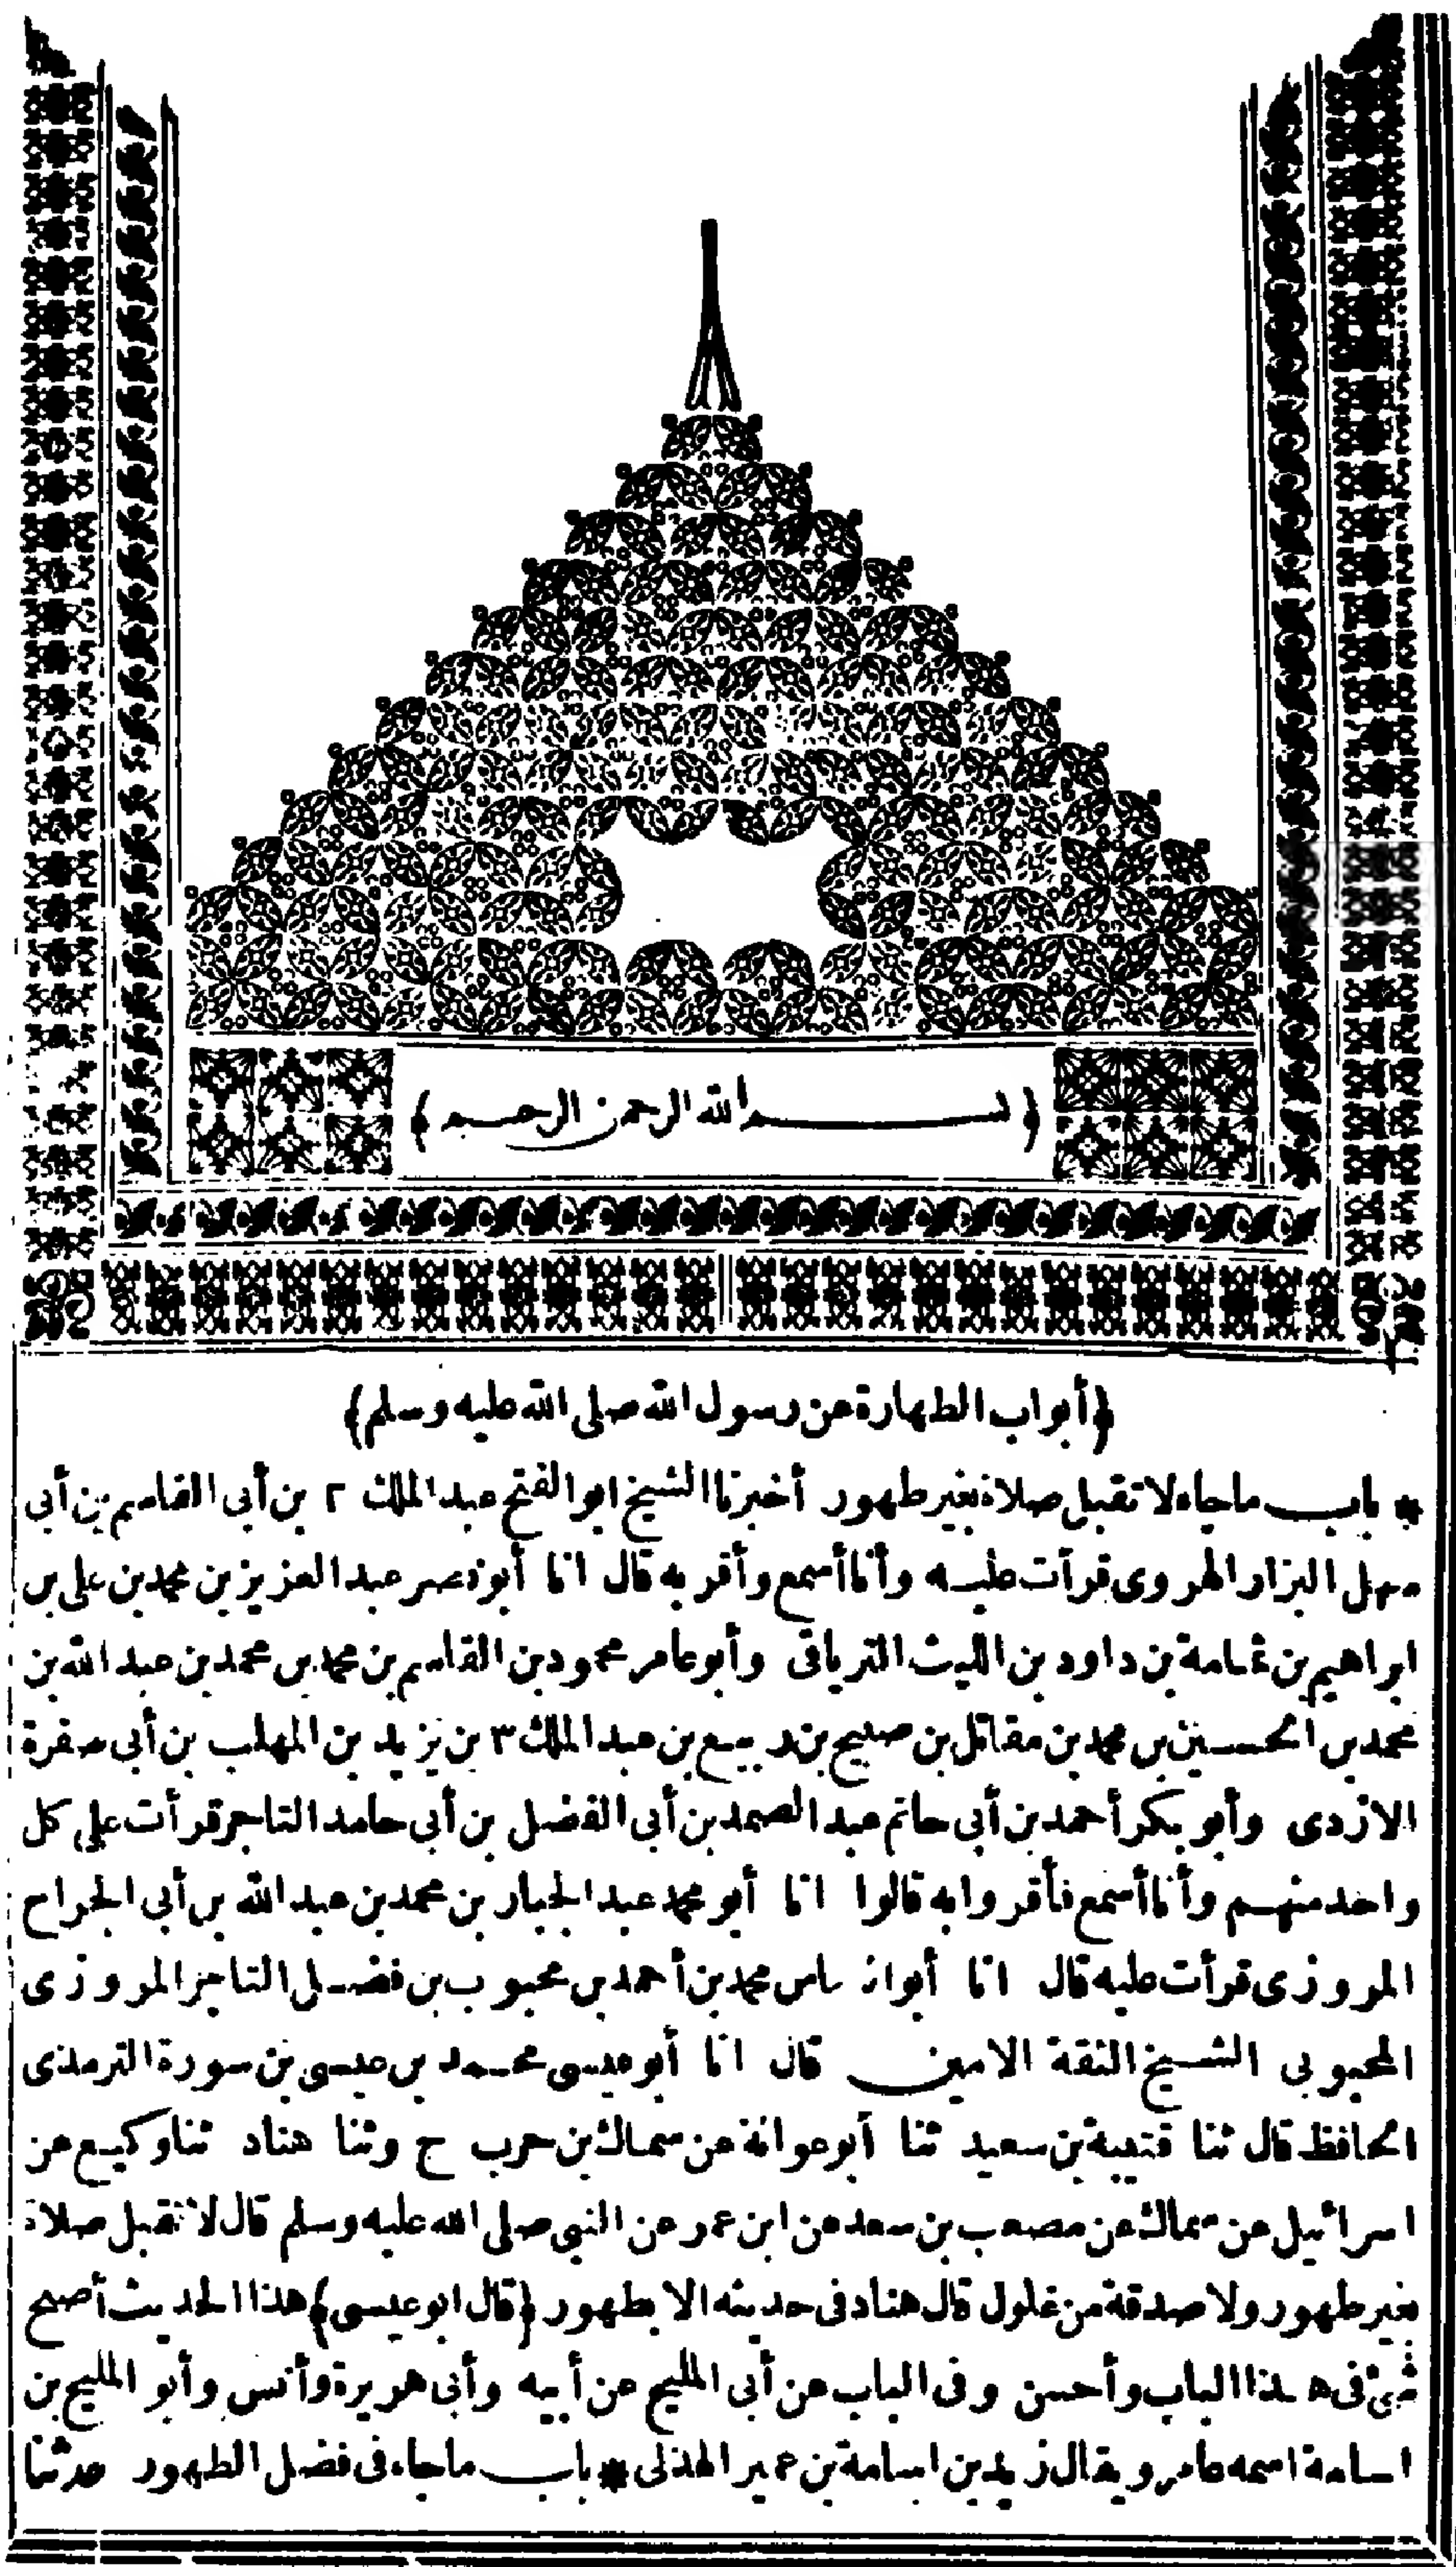 ﴿ بسم الله الرحمن الرحيم ﴾
﴿أبواب الطهارة عن رسول الله صلى الله عليه وسلم﴾
* باب ما جاء لا تقبل صلاة بغير طهور أخبرنا الشيخ ابو الفتح عبد الملك ٢ بن أبى القاسم بن أبى
سهل البزار الهروى قرآت عليه وأنا أسمع وأقر به قال انا أبو نصر عبد العزيز بن محمد بن على بن
ابراهيم بن ثمامة بن داود بن الليث الترياقى وأبو عامر محمود بن القاسم بن محمد بن محمد بن عبد الله بن
محمد بن الحسين بن محمد بن مقاتل بن صبيح بن ربيع بن عبد الملك ٣ بن يزيد بن المهلب بن أبى صفرة
الازدى وأبو بكر أحمد بن أبى حاتم عبد الصمد بن أبى الفضل بن أبى حامد التاجر قرأت على كل
واحد منهم وأنا أسمع فأقر وابه قالوا انا أبو محمد عبد الجبار بن محمد بن عبد الله بن أبى الجراح
المروزى قرأت عليه قال انا أبو العباس محمد بن أحمد بن محبوب بن فضيل التاجر المروزى
المحبوبى الشيخ الثقة الامين قال انا أبو عيسى محمد بن عيسى بن سورة الترمذى
الحافظ قال ثنا قتيبة بن سعيد ثنا أبو عوانة عن سماك بن حرب ح وثنا هناد ثنا وكيع عن
اسرائيل عن سماك عن مصعب بن سعد عن ابن عمر عن النبى صلى الله عليه وسلم قال لا تقبل صلاة
بغير طهور ولا صدقة من غلول قال هناد فى حديثه الا بطهور ﴿قال ابو عيسى﴾ هذا الحديث أصح
شئ فى هذا الباب وأحسن وفى الباب عن أبى المليح عن أبيه وأبى هريرة وأنس وأبو المليح بن
اسامة اسمه عامر ويقال زيد بن اسامة بن عمير الهذلى * باب ما جاء فى فضل الطهور حدثنا